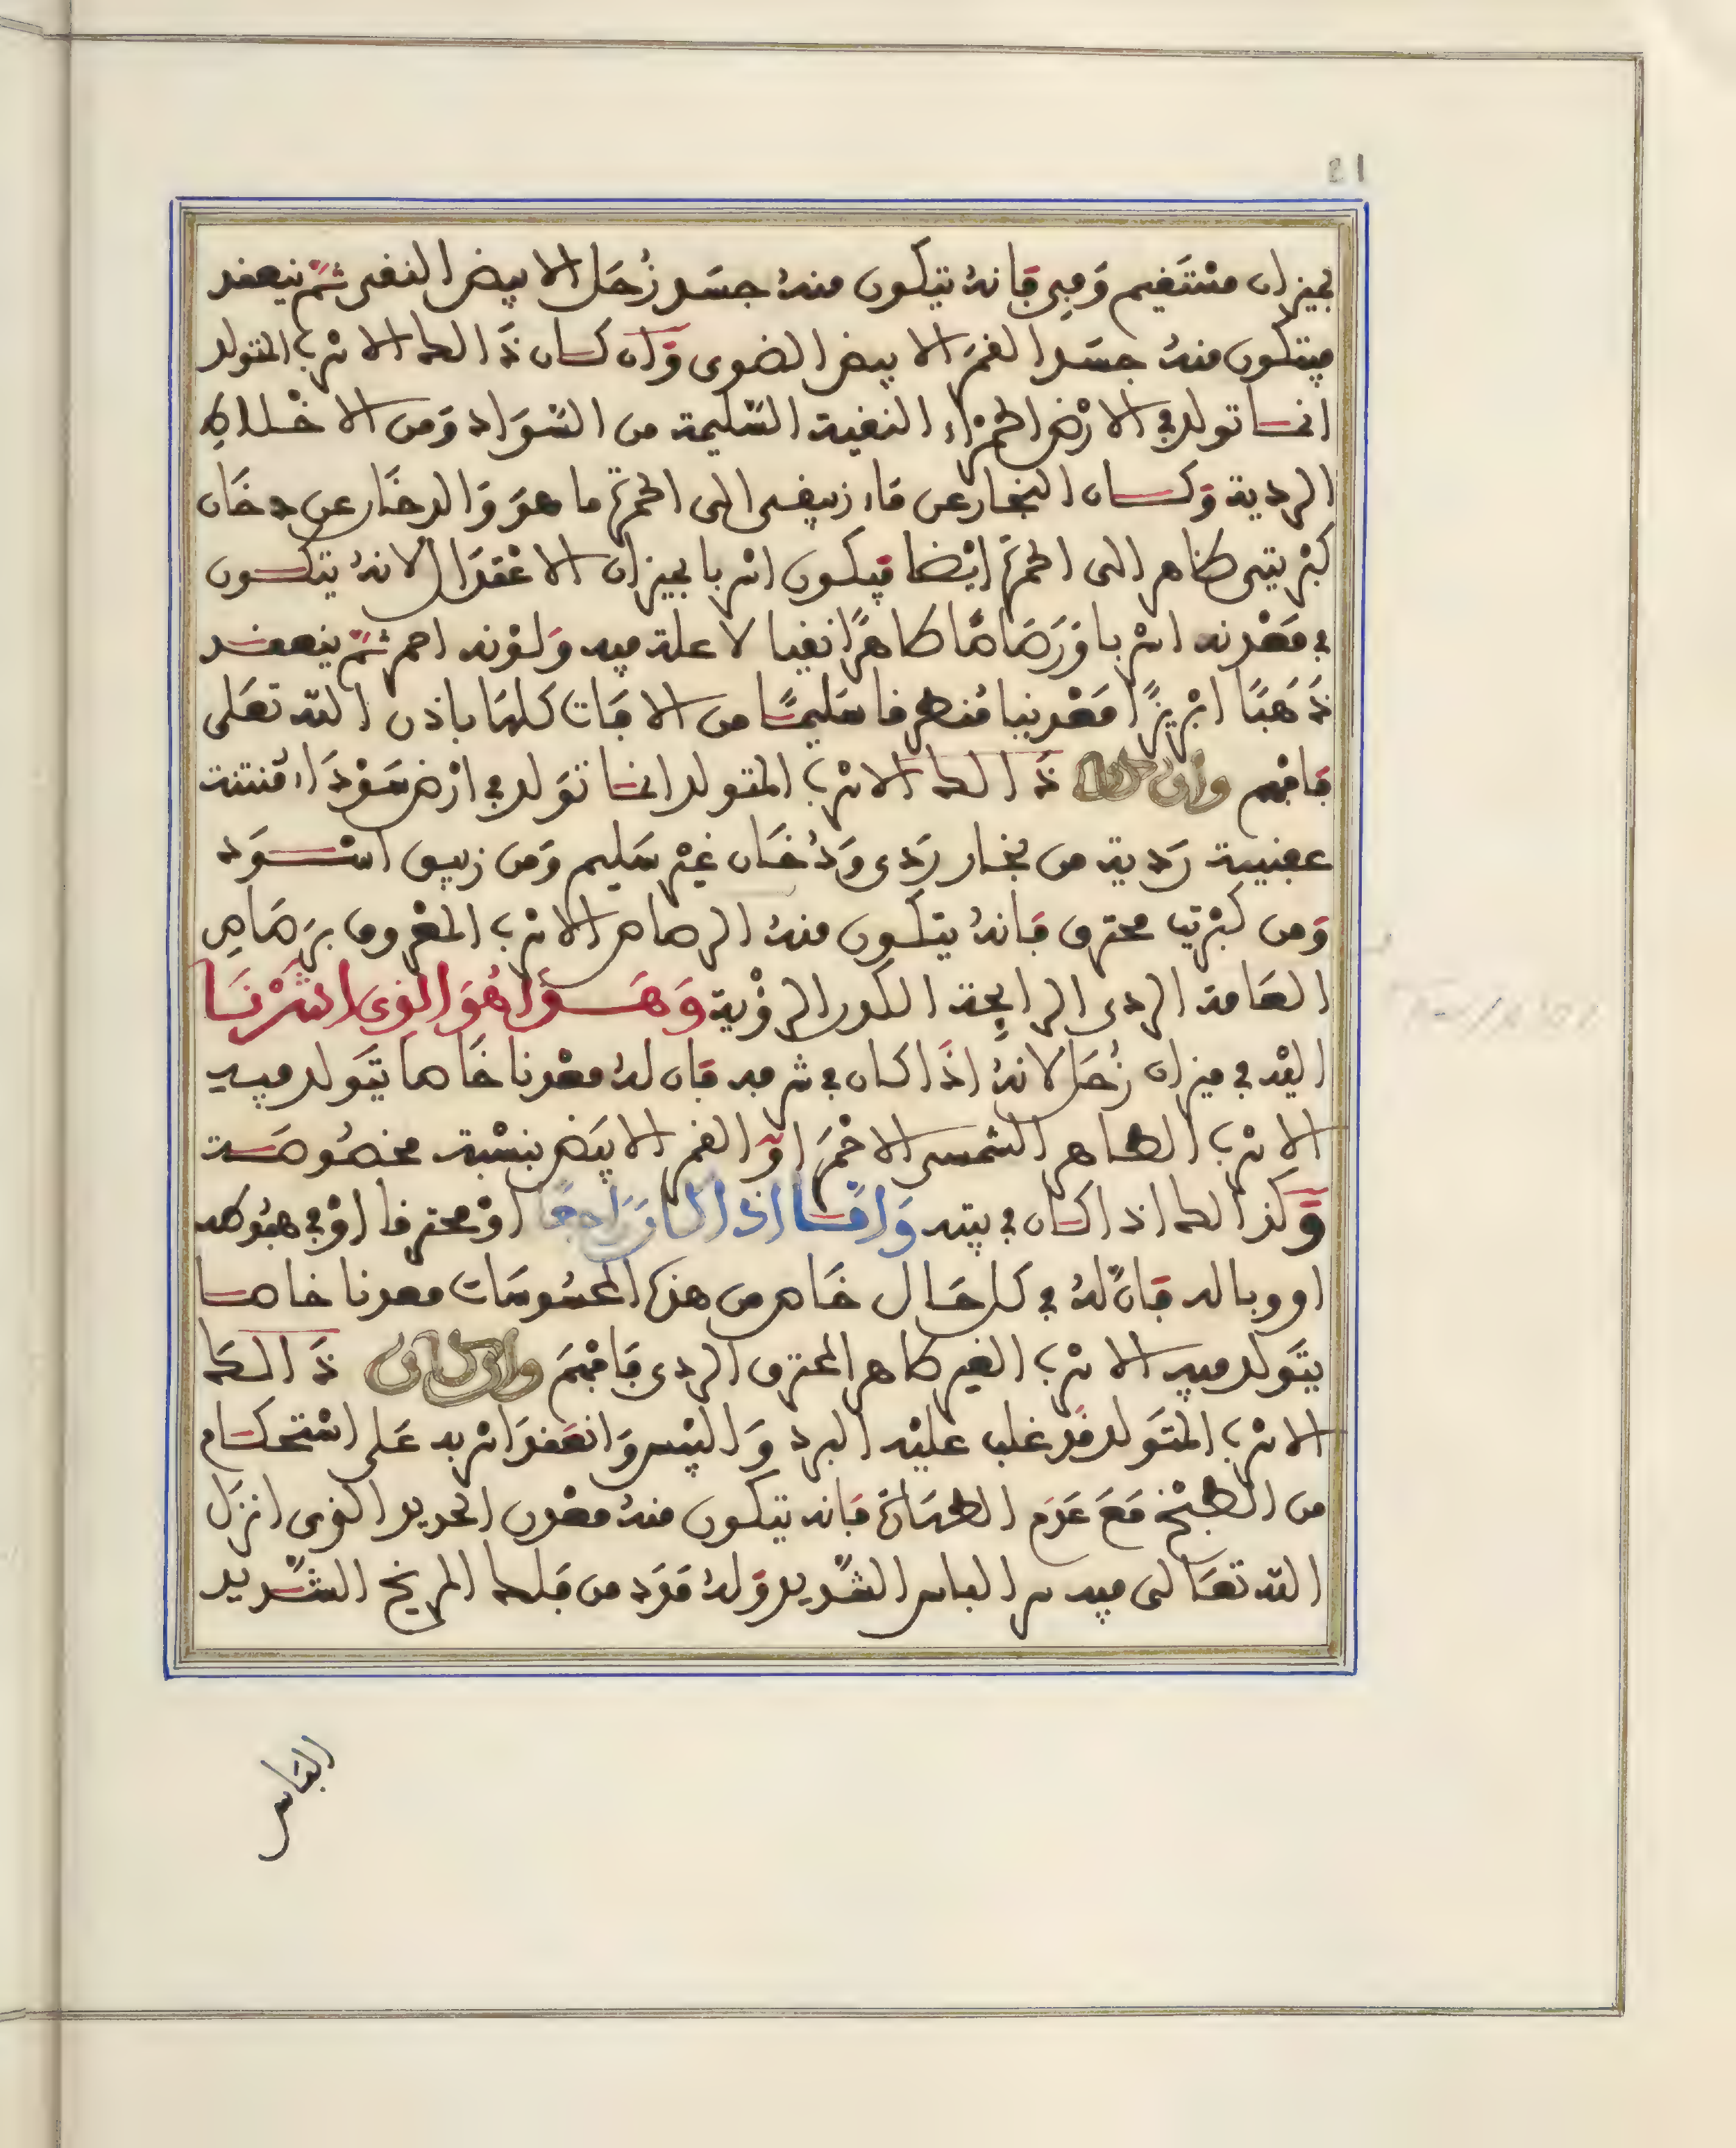 21
بميزان مستقيم وفي فانه يتكون منه جسد زحل الابيض النقى ثم ينعقد
فيتكون منه جسد القمر الابيض الضوى وان كان ذالك الانرب المتولد
انما تولد في الارض الحمراء النقية السليمة من السواد ومن الاخلاط
الردية وكان البخار عن ماء زيبقى الى الحمرة ما هو والدخان عن دخان
كبريتى طاهر الى الحمرة ايضا فيكون انربا بميزان الاعتدال لانه يتكون
في معدنه انربا ورصاصا طاهرا نقيا لا علة فيه ولونه احمر ثم ينعقد
ذهبا ابريزا معدنيا منطرفا سليما من الافات كلها باذن الله تعلى
فافهم وان كان ذالك الانرب المتولد انما تولد في ارض سوداء منتنة
عفنية ردية من بخار ردى ودخان غير سليم ومن زيبق اسود
ومن كبريت محترق فانه يتكون منه الرصاص الانرب المعروف برصاص
العامة الردى الرايحة الكدر الرؤية وهذا هو الذى اشرنا
اليه في ميزان زحل لانه اذا كان في شرفه فان له معدنا خاصا يتولد فيه
الانرب الطاهر الشمسى الاحمر او القمر الابيض بنسبة مخصوصة
وكذالك اذا كان في بيته واما اذا كان راجعا او محترفا او في هبوطه
او وباله فان له في كل حال خاص من هذه المحسوسات معدنا خاصا
يتولد فيه الانرب الغير طاهر المحترق الردى فافهم وان كان ذالك
الانرب المتولد قد غلب عليه البرد واليبس وانعقد انربه على استحكام
من الطبخ مع عدم الطهارة فانه يتكون منه معدن الحديد الذى انزل
الله تعالى فيه سر الباس الشديد وله قوة من فلك المريخ الشديد
الباس